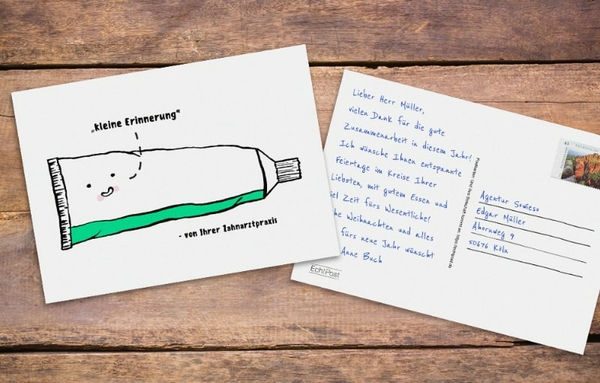 „kleine Erinnerung“
- von Ihrer Zahnarztpraxis
Lieber Herr Müller,
vielen Dank für die gute
Zusammenarbeit in diesem Jahr!
Ich wünsche Ihnen entspannte
Feiertage im Kreise Ihrer
Liebsten, mit gutem Essen und
Zeit fürs Wesentliche!
Weihnachten und alles
fürs neue Jahr wünscht
Anne Buch
EchtPost
Agentur Sowieso
Edgar Müller
Ahornweg 4
50676 Köln